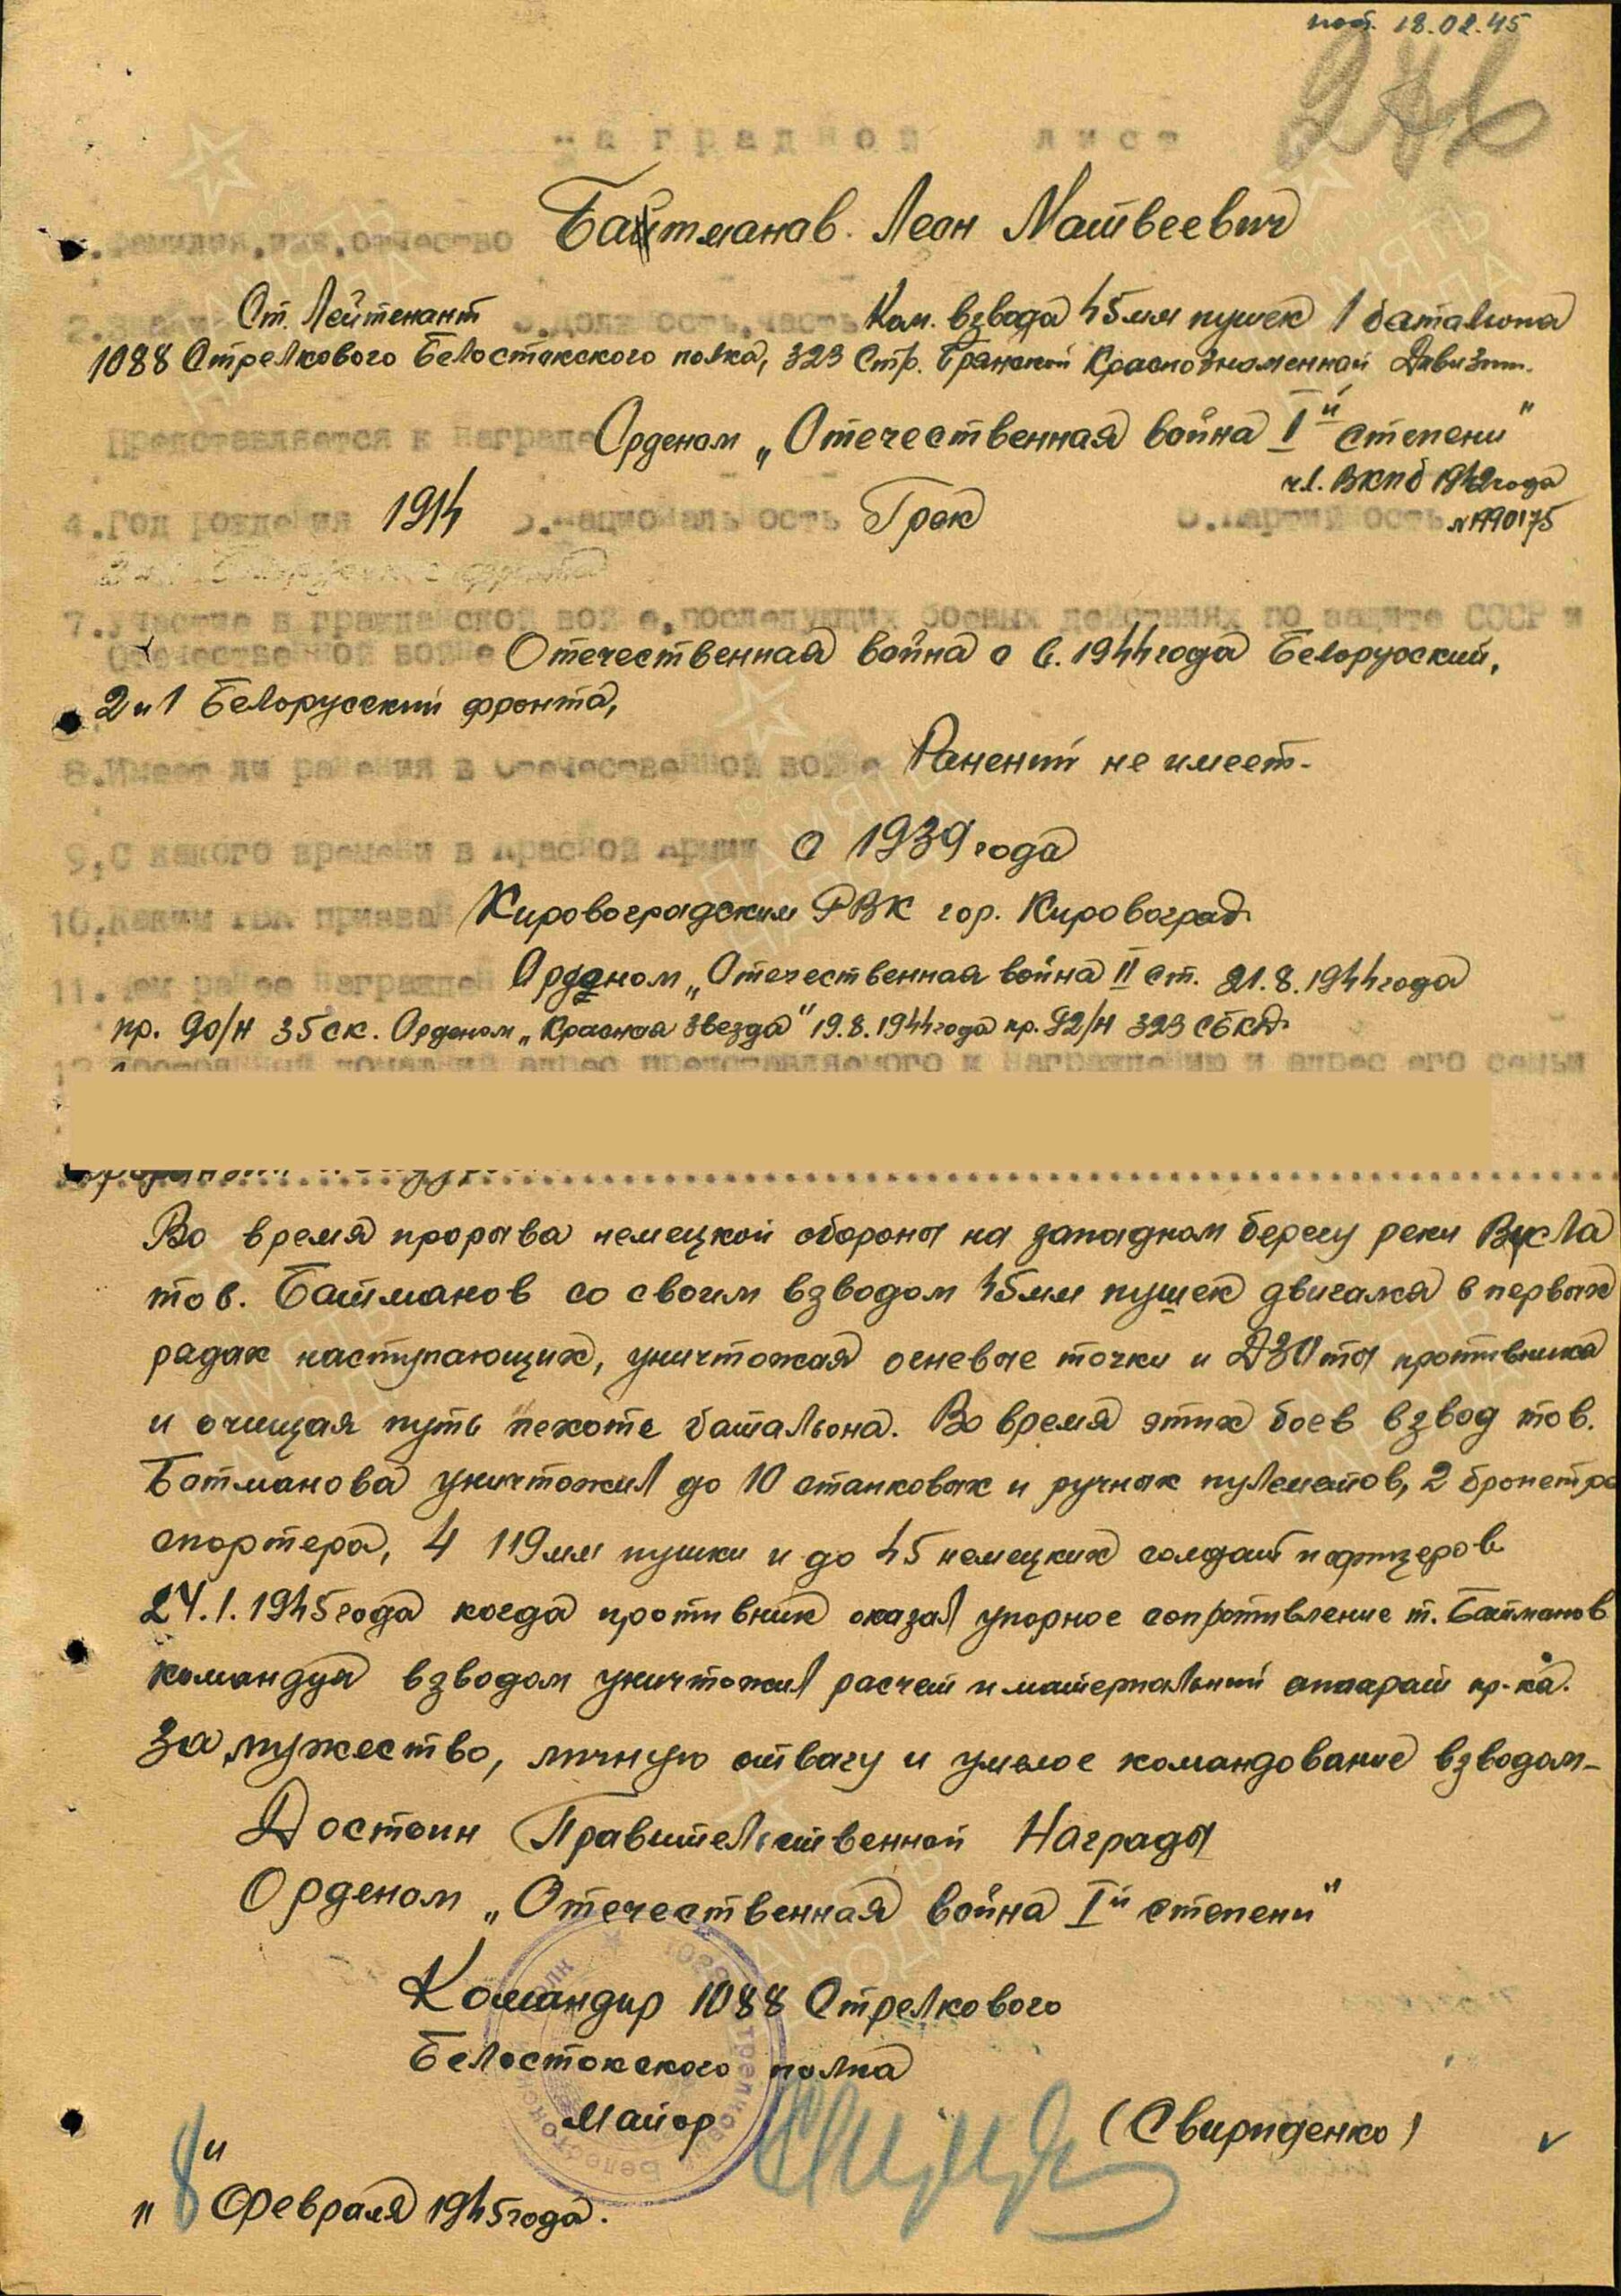 пост. 18.02.45
276
наградной лист
1. Фамилия, имя, отчество Батманов. Леон Матвеевич
Ст. Лейтенант 3. Должность, часть Ком. взвода 45мм пушек 1 батальона
1088 Стрелкового Белостокского полка, 323 Стр. Брянской Краснознаменной Дивизии.
Представляется к награде Орденом „Отечественная война I й степени"
чл. ВКПб 1942 года
4. Год рождения 1914 5. Национальность Грек 6. Партийность
7. Участие в гражданской войне, последующих боевых действиях по защите СССР и
Отечественной войне Отечественная война с 6. 1944 года Белорусский,
2 и 1 Белорусский фронта,
8. Имеет ли ранения в Отечественной войне Ранений не имеет.
9, С какого времени в Красной Армии с 1939 года
10, Каким РВК призван Кировоградским РВК гор. Кировоград.
11. Чем ранее награжден Орденом „Отечественная война II ст. 21. 8. 1944 года
пр. 90/н 35 ск. Орденом „Красная Звезда" 19. 8. 1944 года пр. 92/н 323 СБКД
12. Постоянный домашний адрес представляемого к награждению и адрес его семьи
Во время прорыва немецкой обороны на западном берегу реки Висла
тов. Батманов со своим взводом 45мм пушек двигался в первых
рядах наступающих, уничтожая огневые точки и ДЗОты противника
и очищая путь пехоте батальона. Во время этих боев взвод тов.
Батманова уничтожил до 10 станковых и ручных пулеметов, 2 бронетра
спортера, 4 119мм пушки и до 45 немецких солдат и офицеров
24. 1. 1945 года когда противник оказал упорное сопротивление т. Батманов
командуя взводом уничтожил расчет и материальный аппарат пр-ка.
За мужество, личную отвагу и умелое командование взводом –
Достоин Правительственной Награды
Орденом „Отечественная война I й степени"
Командир 1088 Стрелкового
Белостокского полка
Майор (Свириденко)
„8" Февраля 1945 года.